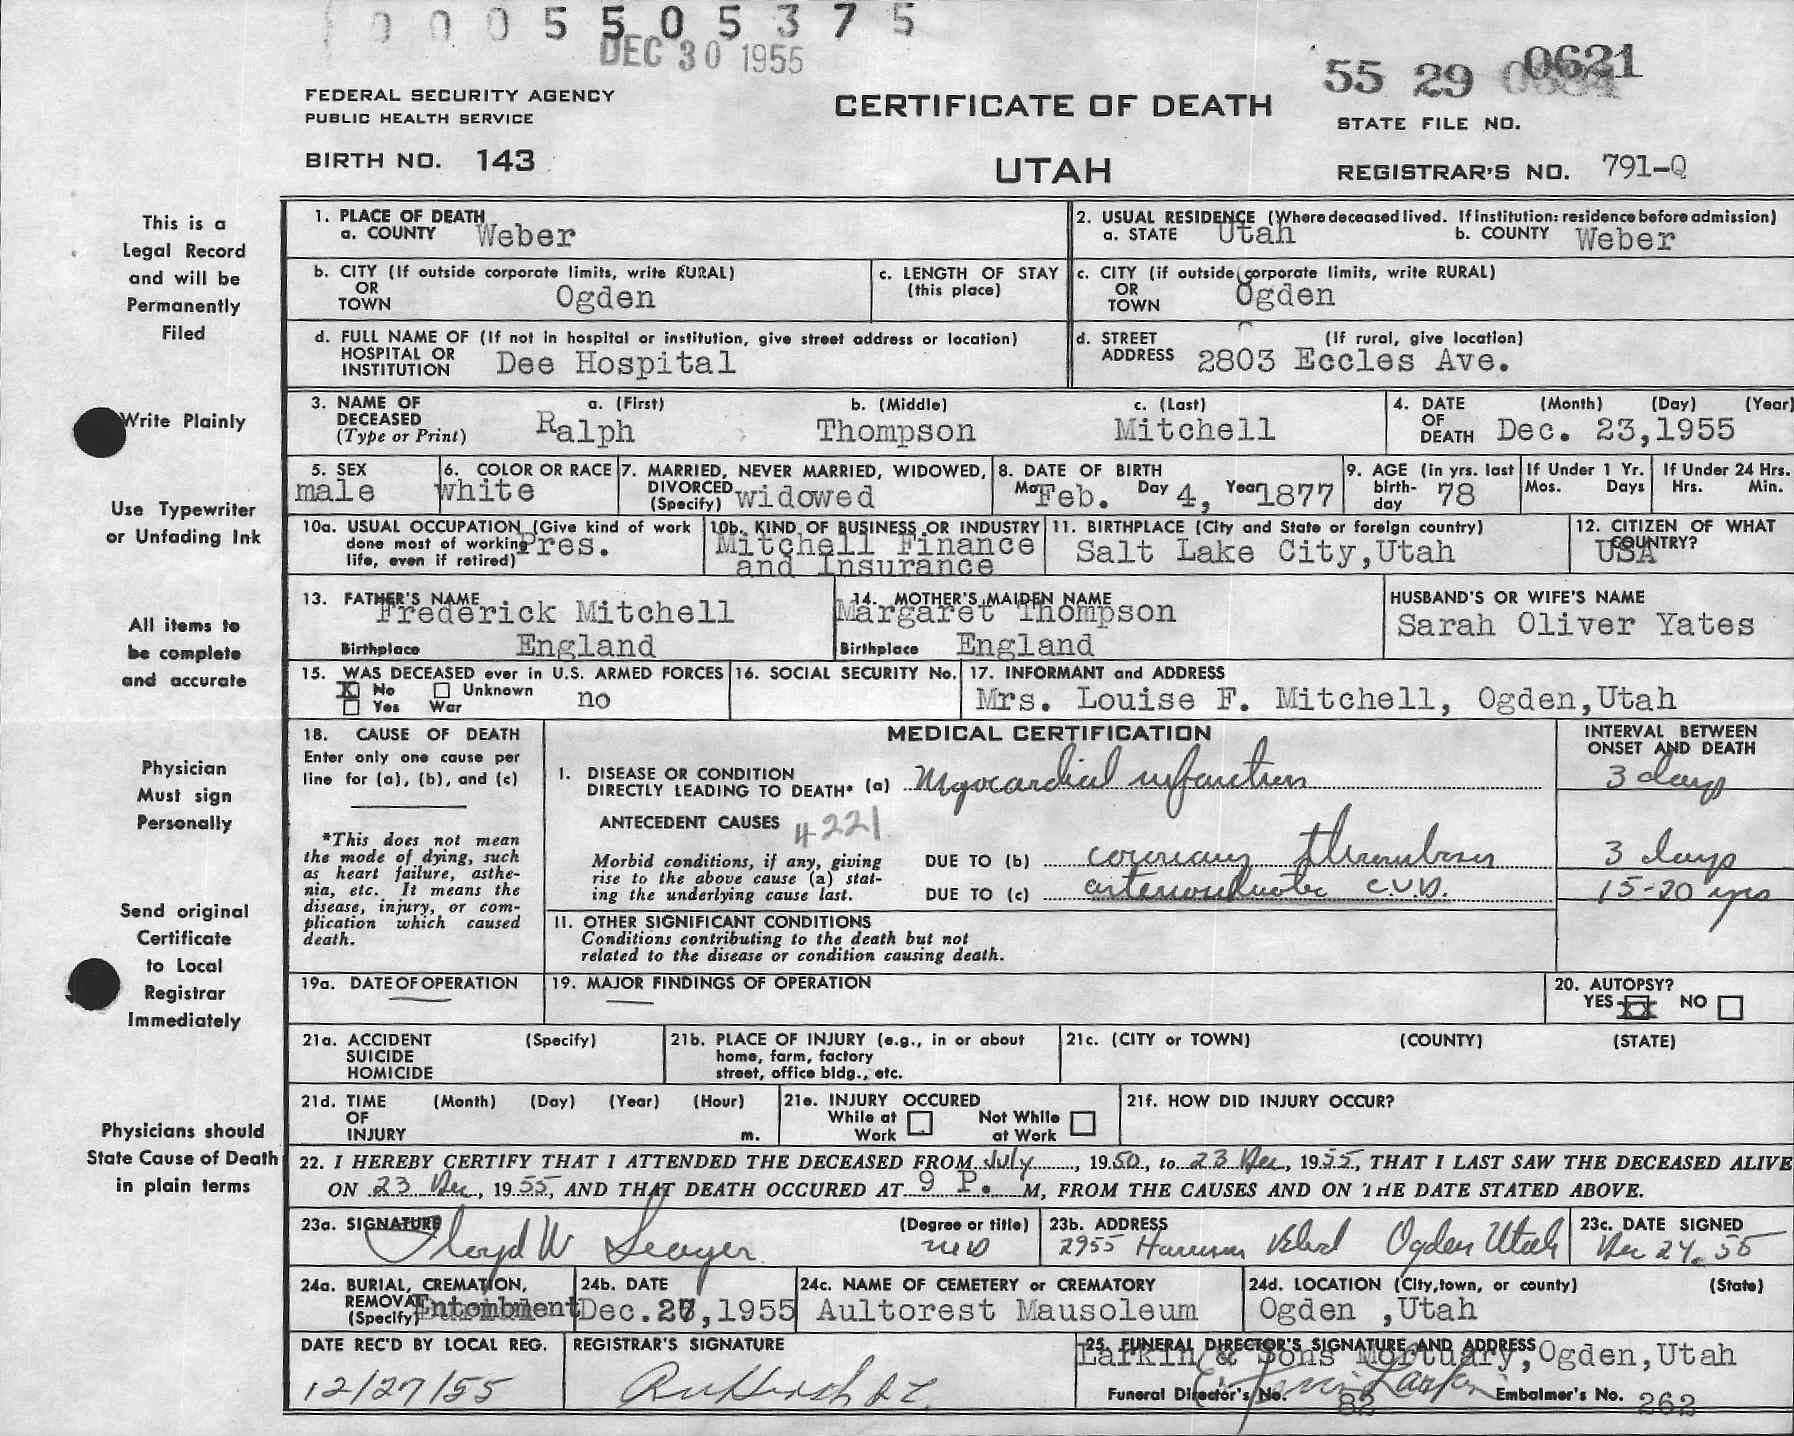 0 0 0 5 5 0 5 3 7 5
DEC 30 1955
55 29 0621
FEDERAL SECURITY AGENCY
PUBLIC HEALTH SERVICE
CERTIFICATE OF DEATH
STATE FILE NO.
BIRTH NO. 143
UTAH
REGISTRAR'S NO. 791-Q
This is a
Legal Record
and will be
Permanently
Filed
Write Plainly
Use Typewriter
or Unfading Ink
All items to
be complete
and accurate
Physician
Must sign
Personally
Send original
Certificate
to Local
Registrar
Immediately
Physicians should
State Cause of Death
in plain terms
1. PLACE OF DEATH
a. COUNTY Weber
2. USUAL RESIDENCE (Where deceased lived. If institution: residence before admission)
a. STATE Utah b. COUNTY Weber
b. CITY (If outside corporate limits, write RURAL)
OR
TOWN Ogden
c. LENGTH OF STAY
(this place)
c. CITY (if outside corporate limits, write RURAL)
OR
TOWN Ogden
d. FULL NAME OF (If not in hospital or institution, give street address or location)
HOSPITAL OR
INSTITUTION Dee Hospital
d. STREET (If rural, give location)
ADDRESS 2803 Eccles Ave.
3. NAME OF a. (First) b. (Middle) c. (Last)
DECEASED Ralph Thompson Mitchell
(Type or Print)
4. DATE (Month) (Day) (Year)
OF
DEATH Dec. 23,1955
5. SEX
male
6. COLOR OR RACE
white
7. MARRIED, NEVER MARRIED, WIDOWED,
DIVORCED widowed
(Specify)
8. DATE OF BIRTH
Mo Feb. Day 4, Year 1877
9. AGE (in yrs. last
birth- 78
day
If Under 1 Yr.
Mos. Days
If Under 24 Hrs.
Hrs. Min.
10a. USUAL OCCUPATION (Give kind of work
done most of working Pres.
life, even if retired)
10b. KIND OF BUSINESS OR INDUSTRY
Mitchell Finance
and Insurance
11. BIRTHPLACE (City and State or foreign country)
Salt Lake City,Utah
12. CITIZEN OF WHAT
COUNTRY?
USA
13. FATHER'S NAME
Frederick Mitchell
Birthplace England
14. MOTHER'S MAIDEN NAME
Margaret Thompson
Birthplace England
HUSBAND'S OR WIFE'S NAME
Sarah Oliver Yates
15. WAS DECEASED ever in U.S. ARMED FORCES
X No Unknown no
Yes War
16. SOCIAL SECURITY No.
17. INFORMANT and ADDRESS
Mrs. Louise F. Mitchell, Ogden,Utah
18. CAUSE OF DEATH
Enter only one cause per
line for (a), (b), and (c)
*This does not mean
the mode of dying, such
as heart failure, asthe-
nia, etc. It means the
disease, injury, or com-
plication which caused
death.
MEDICAL CERTIFICATION
INTERVAL BETWEEN
ONSET AND DEATH
I. DISEASE OR CONDITION
DIRECTLY LEADING TO DEATH* (a) Myocardial infarction 3 days
ANTECEDENT CAUSES 4221
Morbid conditions, if any, giving
rise to the above cause (a) stat-
ing the underlying cause last.
DUE TO (b) coronary thrombosis 3 days
DUE TO (c) arteriosclerotic C.V.D. 15-20 yrs
II. OTHER SIGNIFICANT CONDITIONS
Conditions contributing to the death but not
related to the disease or condition causing death.
19a. DATE OF OPERATION
19. MAJOR FINDINGS OF OPERATION
20. AUTOPSY?
YES X NO
21a. ACCIDENT (Specify)
SUICIDE
HOMICIDE
21b. PLACE OF INJURY (e.g., in or about
home, farm, factory
street, office bldg., etc.
21c. (CITY or TOWN) (COUNTY) (STATE)
21d. TIME (Month) (Day) (Year) (Hour)
OF
INJURY m.
21e. INJURY OCCURED
While at Not While
Work at Work
21f. HOW DID INJURY OCCUR?
22. I HEREBY CERTIFY THAT I ATTENDED THE DECEASED FROM July, 1950, to 23 Dec, 1955, THAT I LAST SAW THE DECEASED ALIVE
ON 23 Dec, 1955, AND THAT DEATH OCCURED AT 9 P. M, FROM THE CAUSES AND ON THE DATE STATED ABOVE.
23a. SIGNATURE (Degree or title)
Floyd W Seager MD
23b. ADDRESS
2955 Harrison Blvd Ogden Utah
23c. DATE SIGNED
Dec 24. 55
24a. BURIAL, CREMATION,
REMOVAL Entombment
(Specify)
24b. DATE
Dec. 27,1955
24c. NAME OF CEMETERY or CREMATORY
Aultorest Mausoleum
24d. LOCATION (City, town, or county) (State)
Ogden ,Utah
DATE REC'D BY LOCAL REG.
12/27/55
REGISTRAR'S SIGNATURE
25. FUNERAL DIRECTOR'S SIGNATURE AND ADDRESS
Larkin & Sons Mortuary,Ogden,Utah
Funeral Director's No. 82 Embalmer's No. 262